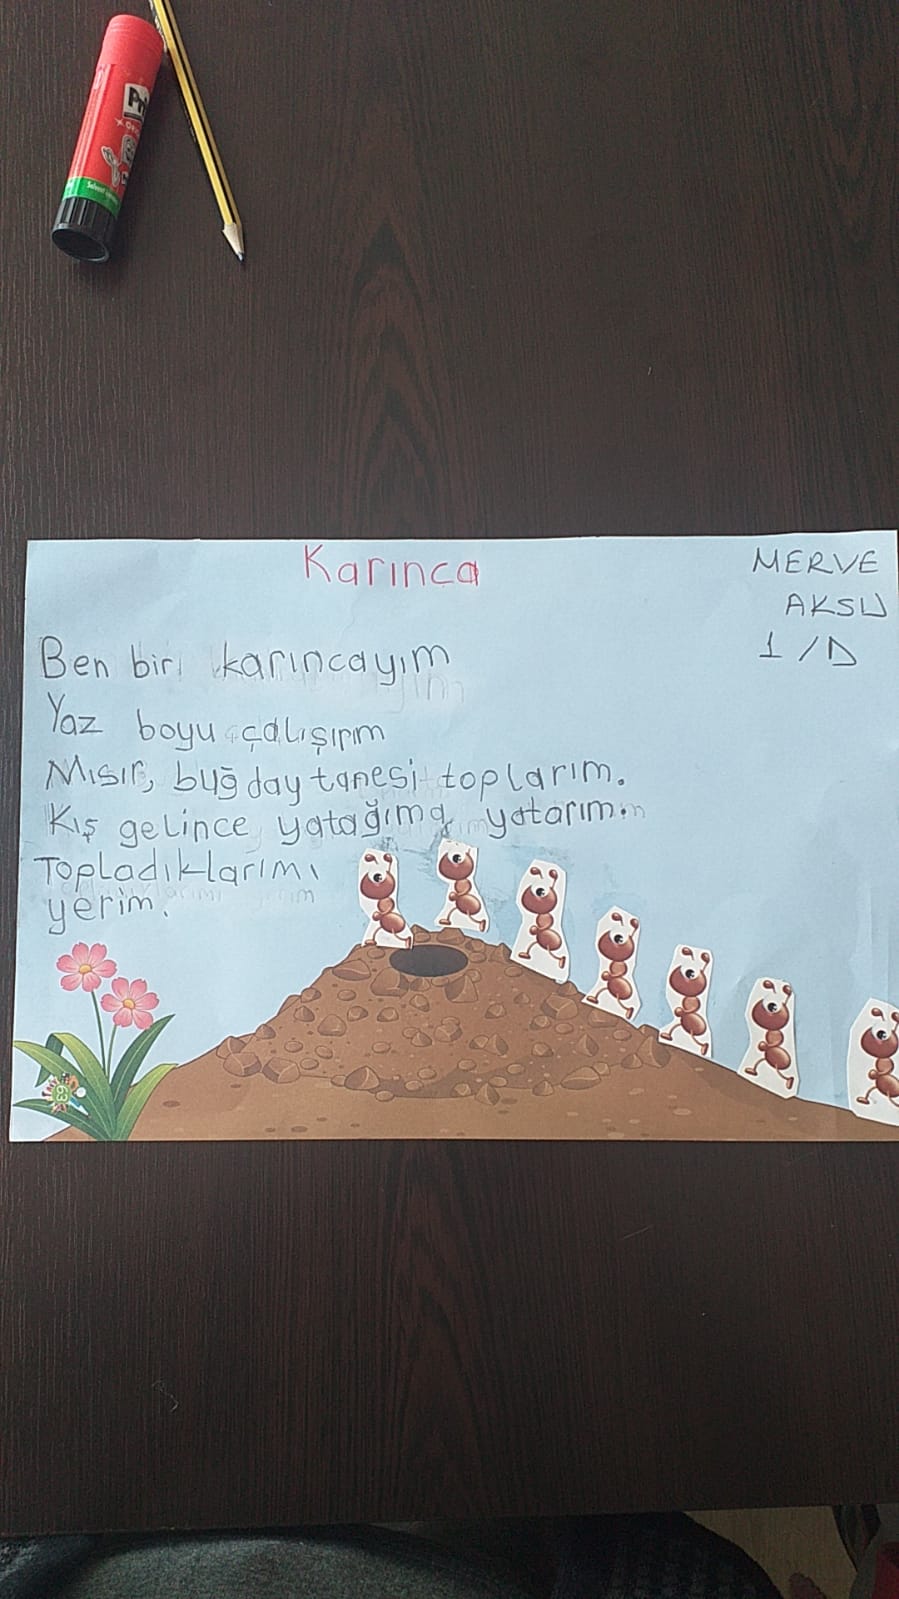 Karınca
MERVE
AKSU
1/D
Ben bir karıncayım
Yaz boyu çalışırım
Mısır, buğday tanesi toplarım.
Kış gelince yatağıma yatarım.
Topladıklarımı
yerim.
Pri